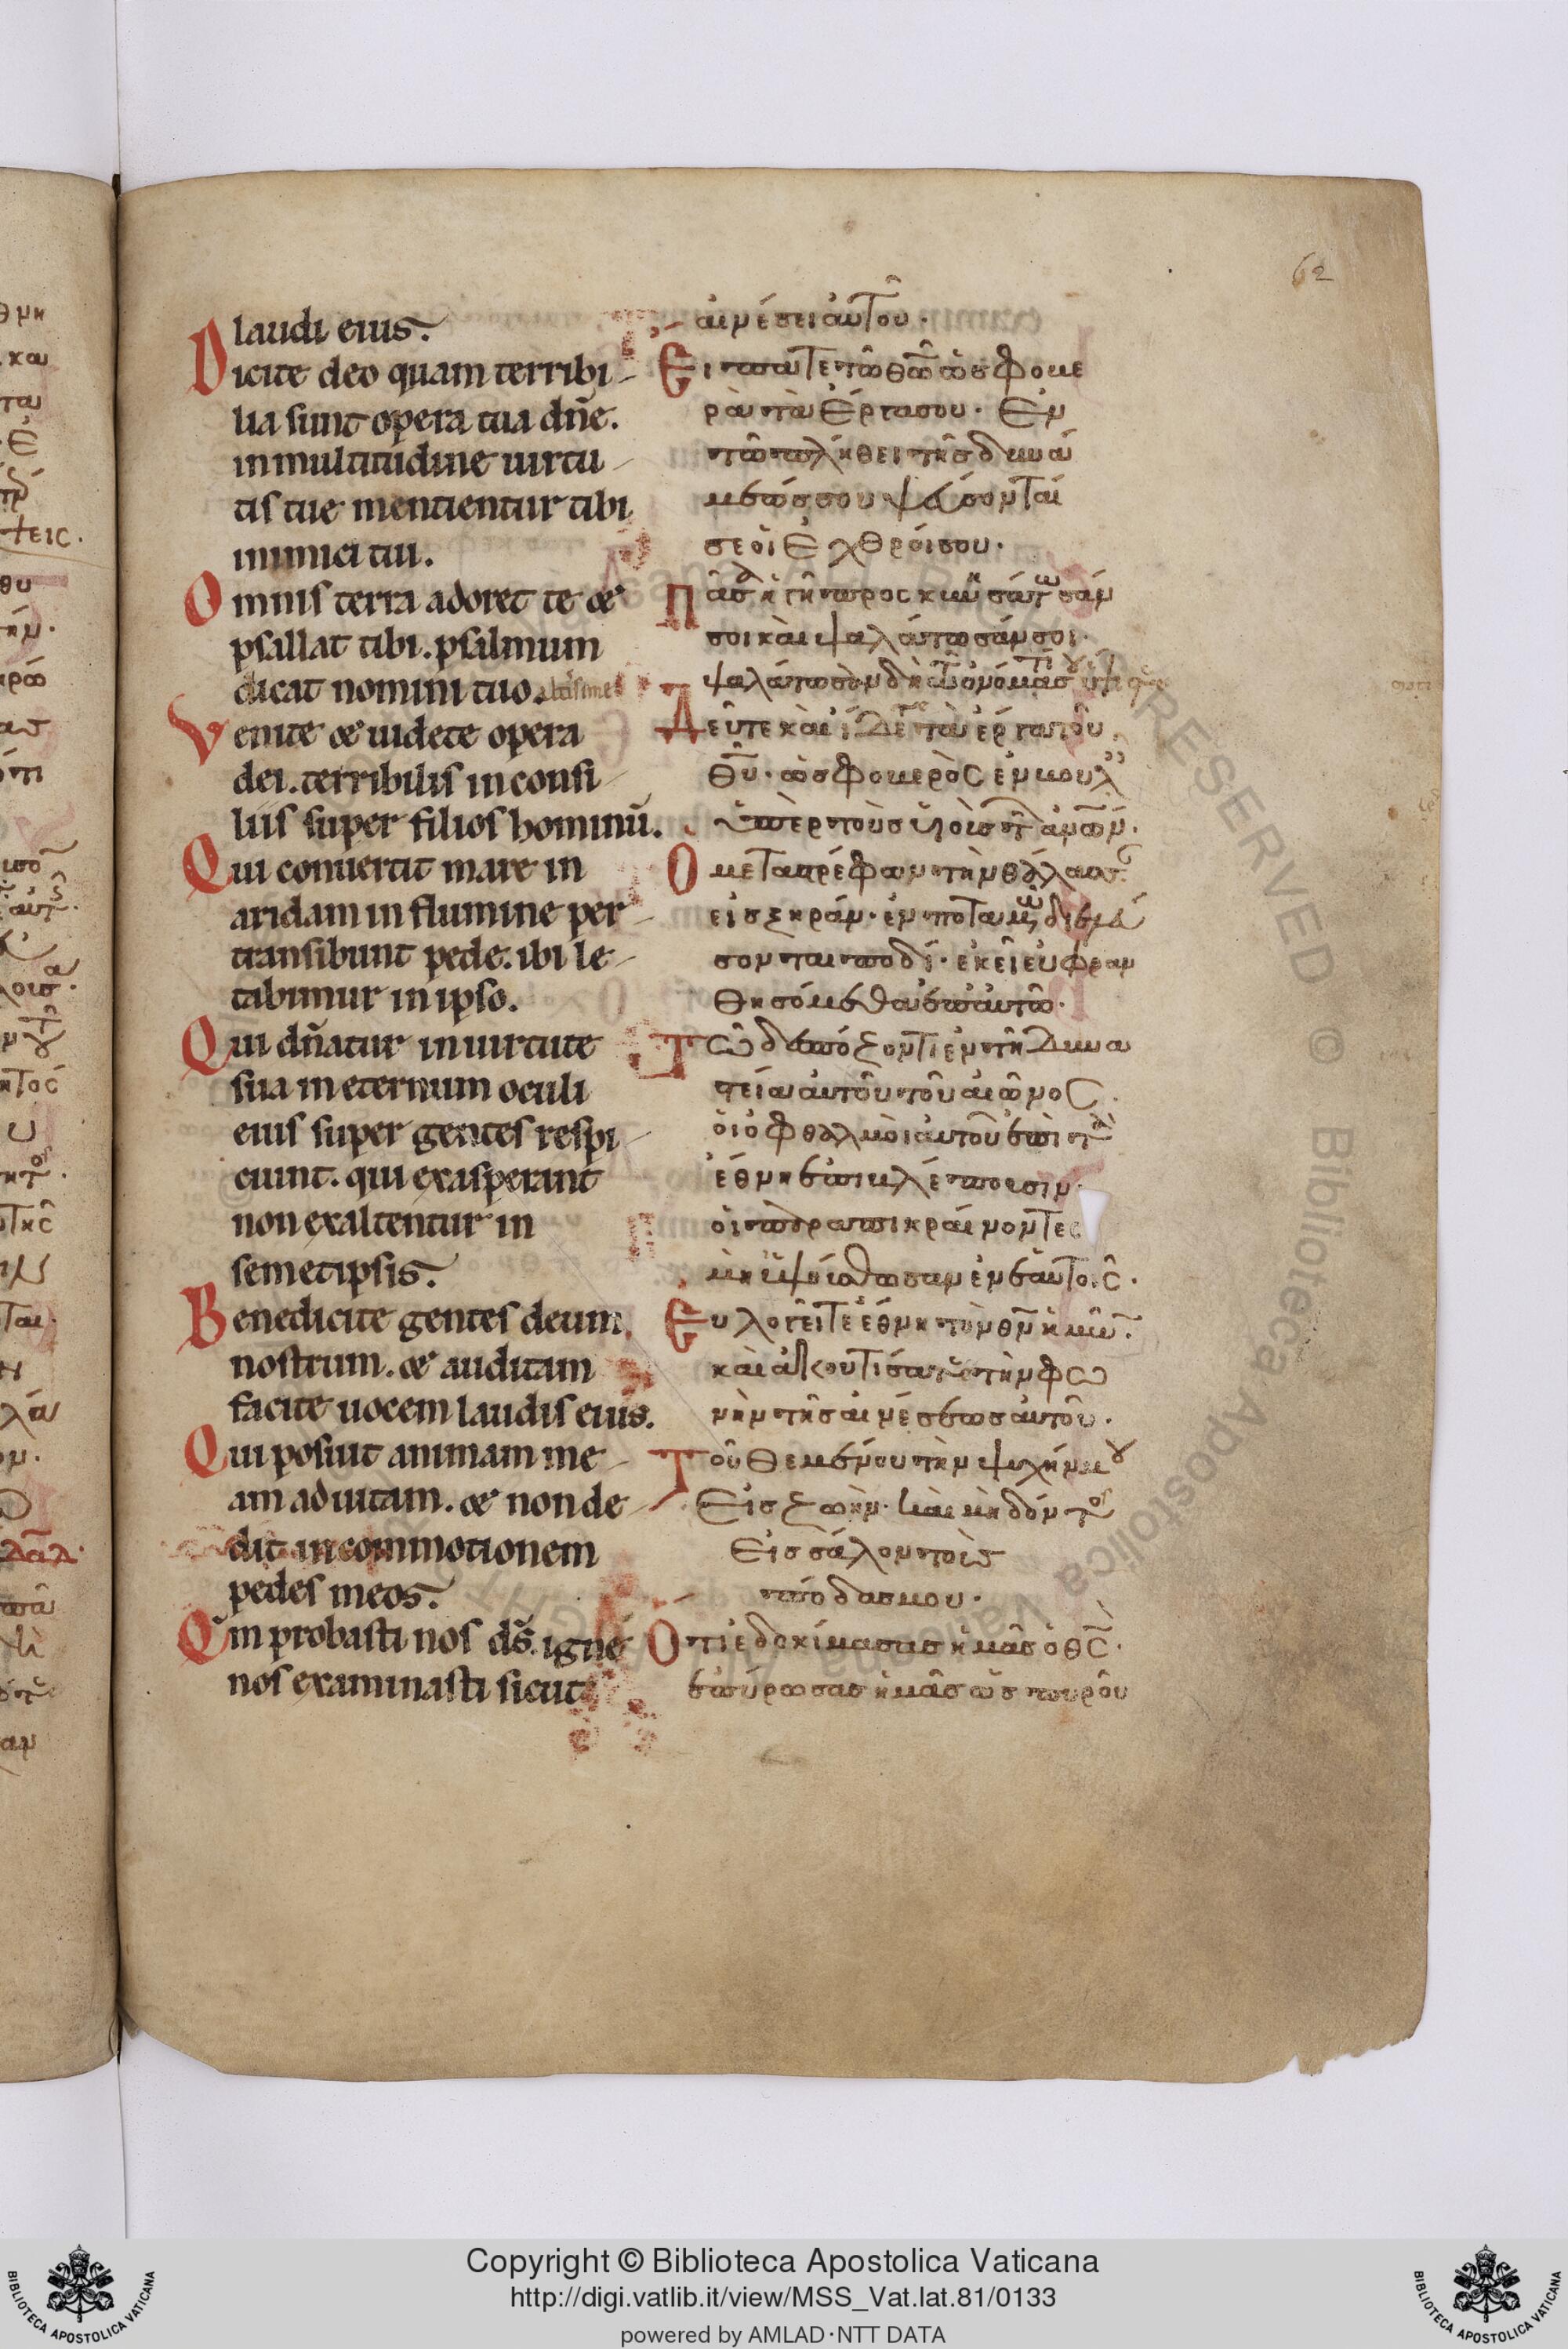 62
laudi eius.
Dicite deo quam terribi-
lia sunt opera tua dñe.
in multitudine uirtu-
tis tue mentientur tibi
inimici tui.
Omnis terra adoret te &
psallat tibi. psalmum
dicat nomini tuo.
Venite & uidete opera
dei. terribilis in consi-
liis super filios hominũ.
Qui conuertit mare in
aridam in flumine per-
transibunt pede. ibi le-
tabimur in ipso.
Qui dñatur in uirtute
sua in eternum oculi
eius super gentes respi-
ciunt. qui exasperant
non exaltentur in
semetipsis.
Benedicite gentes deum
nostrum. & auditam
facite uocem laudis eius.
Qui posuit animam me-
am ad uitam. & non de-
dit in commotionem
pedes meos.
Qm̃ probasti nos dS̃. igne
nos examinasti sicut
αἰνέσει αὐτοῦ.
Εἴπατε τῶ θῶ ὡς φοβε
ρὰ τὰ ἔργα σου. Ἐν
τῶ πλήθει τῆς δυνά
μεώς σου ψεύσονταί
σε οἱ ἐχθροί σου.
Πᾶσα ἡ γῆ προσκυνησάτωσάν
σοι καὶ ψαλάτωσάν σοι.
Δεῦτε καὶ ἴδετε τὰ ἔργα τοῦ
θῦ. ὡς φοβερὸς ἐν βουλ
ὑπὲρ τοὺς υἱοὺς τ ἀνων.
Ὁ μεταστρέφων τὴν θάλασς
εἰς ξηράν. ἐν ποταμῶ διελεύ
σονται ποδί. ἐκεῖ εὐφραν
θησόμεθα ἐπ αὐτῶ.
Τῶ δεσπόζοντι ἐν τῆ δυνα
στεία αὐτοῦ τοῦ αἰῶνος.
οἱ ὀφθαλμοὶ αὐτοῦ ἐπὶ τὰ
ἔθνη ἐπιβλέπουσιν.
οἱ παραπικραίνοντες
μὴ ὑψούσθωσαν ἐν ἑαυτοῖς.
Εὐλογεῖτε ἔθνη τὸν θν ἡμῶν.
καὶ ἀκουτίσατε τὴν φω
νὴν τῆς αἰνέσεως αὐτοῦ.
Τοῦ θεμένου τὴν ψυχήν μου
Εἰς ζωήν. καὶ μὴ δόντος
Εἰς σάλον τοὺς
πόδας μου.
Ὅτι ἐδοκίμασας ἡμᾶς ὁ θς.
ἐπύρωσας ἡμᾶς ὡς πυροῦ
Copyright © Biblioteca Apostolica Vaticana
http://digi.vatlib.it/view/MSS_Vat.lat.81/0133
powered by AMLAD·NTT DATA
BIBLIOTECA APOSTOLICA VATICANA
BIBLIOTECA APOSTOLICA VATICANA